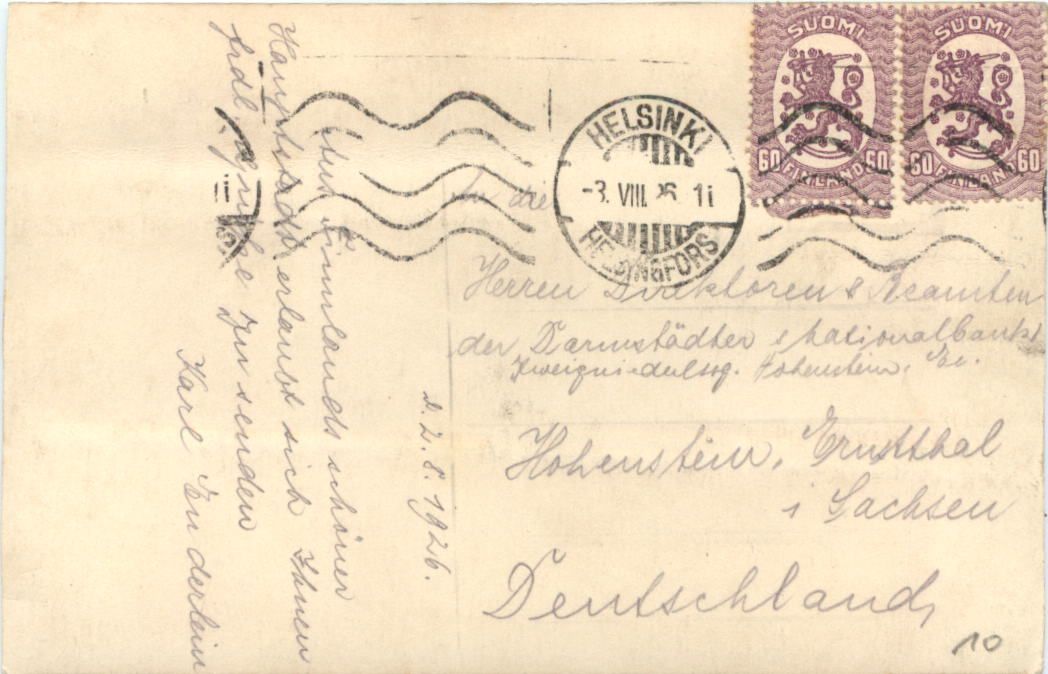 SUOMI
60 60
FINLAND
SUOMI
60 60
FINLAND
HELSINKI
-3. VIII. 26. 11
HELSINGFORS
An die
Herren Direktoren & Beamten
der Darmstädter & Nationalbank
Zweigniederlssg. Hohenstein, Er.
Hohenstein, Ernstthal
i Sachsen
Deutschland,
10
d. 2. 8. 1926.
Aus Finnlands schöner
Hauptstadt erlaubt sich Ihnen
frdl. Grüsse zu senden
Karl Enderlein